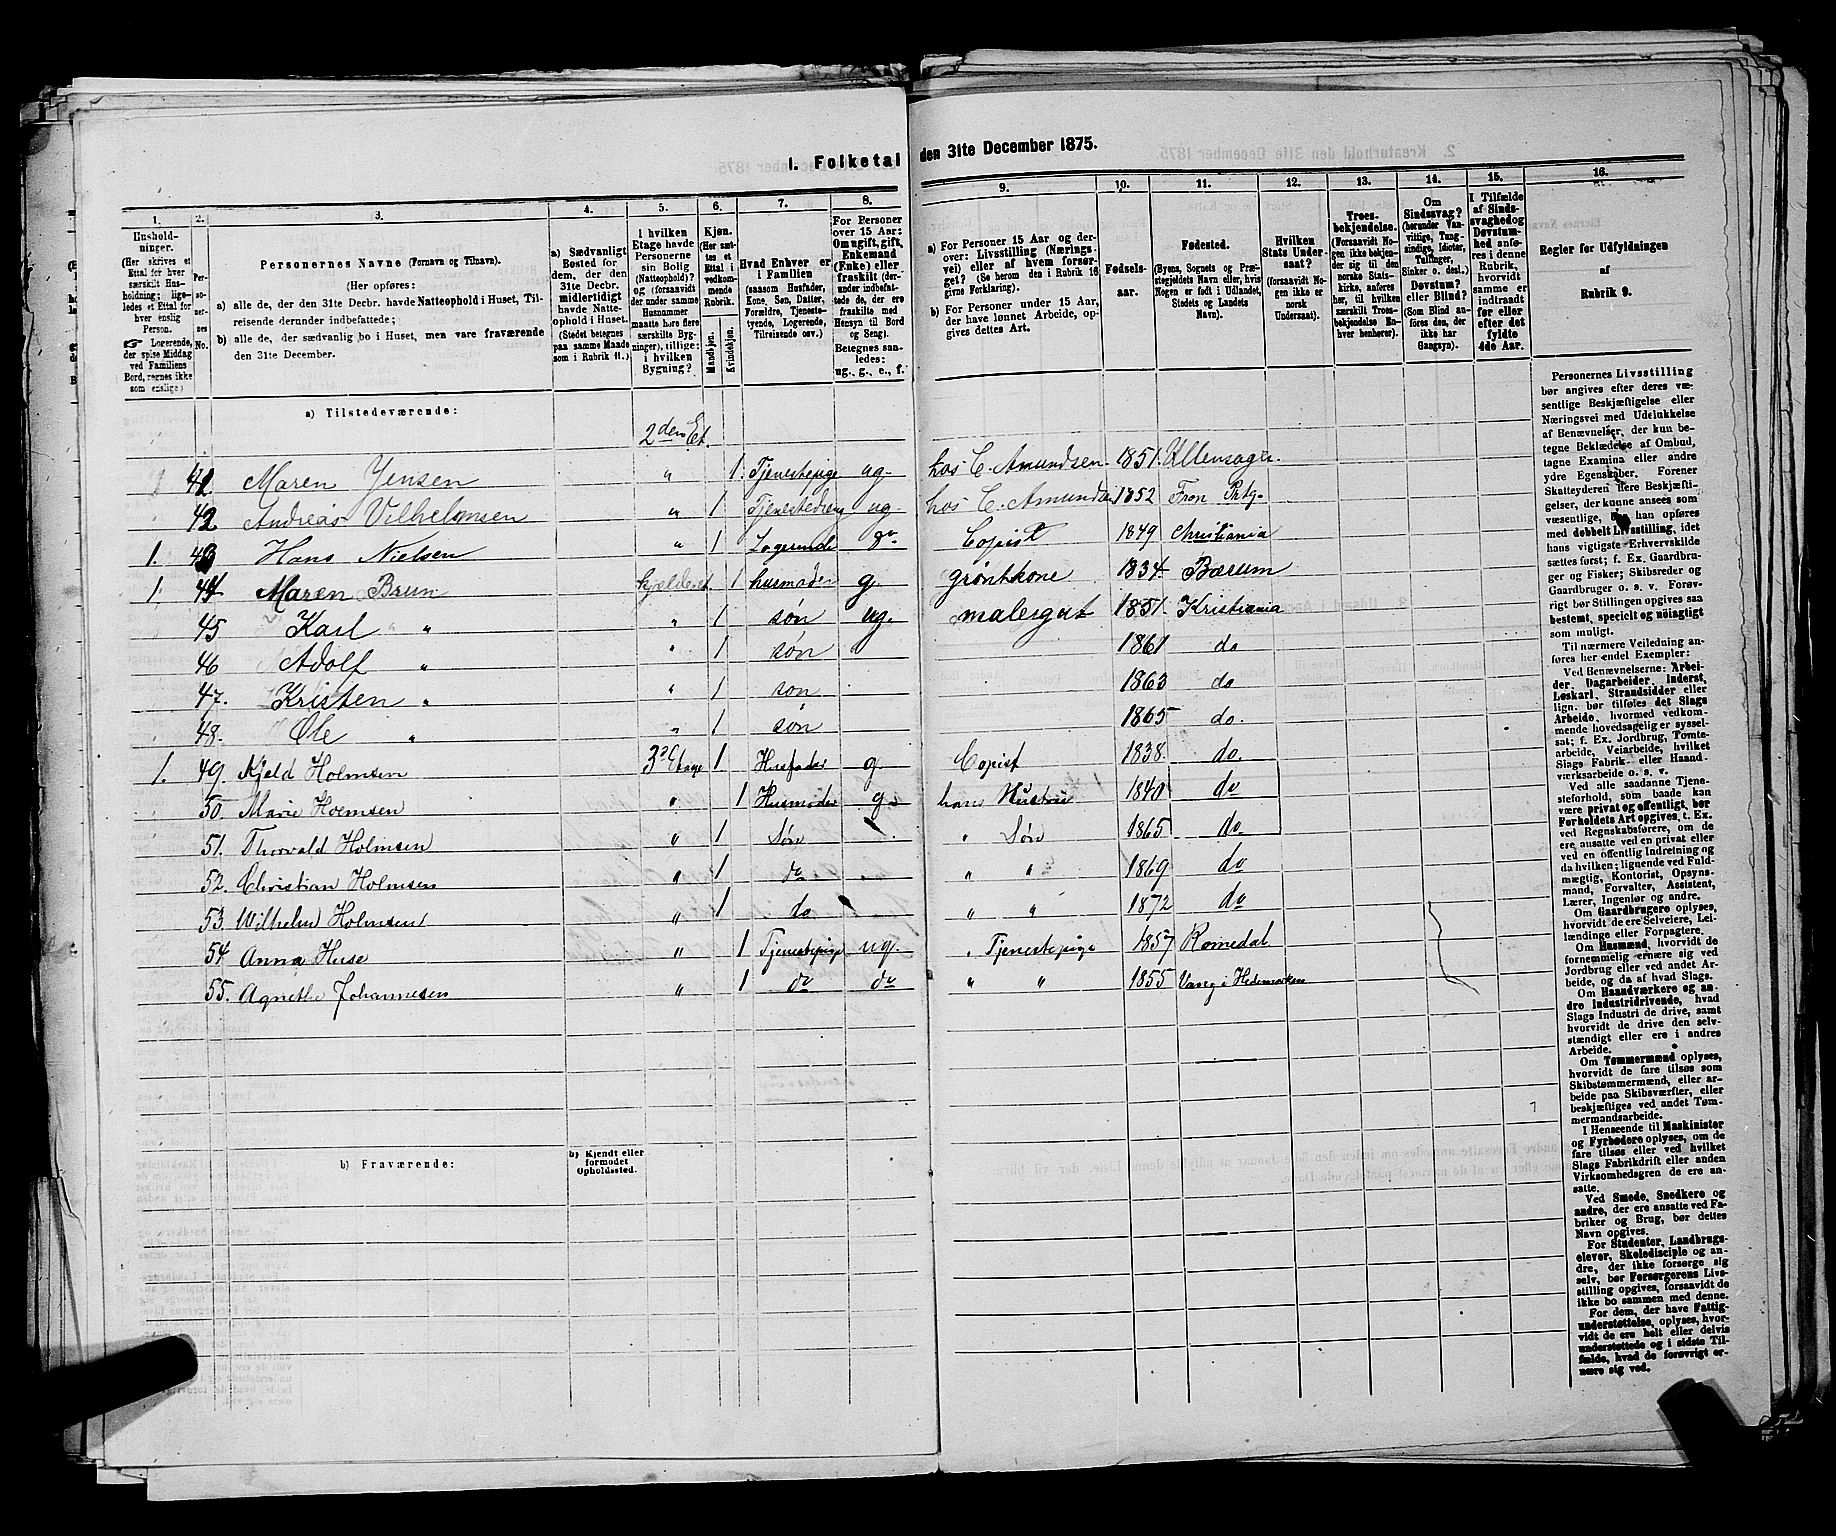 1. Folketal
den 31te December 1875.
1. 2. 3. 4. 5. 6. 7. 8. 9. 10. 11. 12. 13. 14. 15. 16.
Husholdninger. (Her skrives et Ettal for hver særskilt Husholdning; ligeledes et Ettal for hver enslig Person. Logerende, der spise Middag ved Familiens Bord, regnes ikke som enslige)
Personernes No.
Personernes Navne (Fornavn og Tilnavn).
(Her opføres:
a) alle de, der den 31te Decbr. havde Natteophold i Huset, Tilreisende derunder indbefattede;
b) alle de, der sædvanlig bo i Huset, men vare fraværende den 31te December.
a) Sædvanligt Bosted for dem, der den 31te Decbr. midlertidigt havde Natteophold i Huset. (Stedet betegnes paa samme Maade som i Rubrik 11.)
I hvilken Etage havde Personerne sin Bolig (Natteophold)? (og forsaavidt der under samme Husnummer maatte høre flere særskilte Bygninger), tillige: i hvilken Bygning?
Kjøn. (Her sættes et Ettal i vedkommende Rubrik.
Mandkjøn.
Kvindekjøn.
Hvad Enhver er i Familien (saasom Husfader, Kone, Søn, Datter, Forældre, Tjenestetyende, Logerende, Tilreisende osv.)
For Personer over 15 Aar: Om ugift, gift, Enkemand (Enke) eller fraskilt (derunder indbefattede de, der ere fraskilte med Hensyn til Bord og Seng). Betegnes saaledes: ug., g., e., f.
a) For Personer 15 Aar og derover: Livsstilling (Næringsvei) eller af hvem forsørget? (Se herom den i Rubrik 16 givne Forklaring).
b) For Personer under 15 Aar, der have lønnet Arbeide, opgives dettes Art.
Fødselsaar.
Fødested. (Byens, Sognets og Præstegjeldets Navn eller, hvis Nogen er født i Udlandet, Stedets og Landets Navn).
Hvilken Stats Undersaat? (forsaavidt Nogen ikke er norsk Undersaat).
Troesbekjendelse. (Forsaavidt Nogen ikke bekjender sig til den norske Statskirke, anføres her, til hvilken særskilt Troesbekjendelse Enhver henhører).
Om Sindssvag? (herunder Vanvittige, Tungsindige, Idioter, Tullinger, Sinker o. desl.) Døvstum? eller Blind? (Som Blind anføres den, der ikke har Gangsyn).
I Tilfælde af Sindssvaghed og Døvstumhed anføres i denne Rubrik, hvorvidt samme er indtraadt før eller efter det fyldte 4de Aar.
Regler for Udfyldningen af Rubrik 9.
a) Tilstedeværende:
2den Et
42. Maren Jensen " 1. Tjenestepige ug. hos C. Amundsen 1851. Ullensager.
42 Andreas Vilhelmsen " 1 Tjenestedreng ug. hos C. Amundsen 1852 Fron Prtg.
1. 43 Hans Nielsen " 1 Logerende do Copist 1849 Christiania
1. 44 Maren Brun kjelderet 1 husmoder g. grøntkone 1834 Bærum
45 Karl " " 1 søn ug. malergut 1851. Kristiania
46 Adolf " " 1 søn 1861 do
47. Kristen " " 1 søn 1863 do
48. Ole " " 1 søn 1865 do.
1. 49. Kjeld Holmsen 3die Etage 1 Husfader g. Copist 1838. do.
50. Marie Holmsen " 1 Husmoder g. hans Hustru 1840 do
51. Thorvald Holmsen " 1 Søn " Søn 1865 do
52. Christian Holmsen " 1 do " " 1869 do
53. Wilhelm Holmsen " 1 do " " 1872 do
54 Anna Huse " 1 Tjenestepige ug. " Tjenestepige 1857 Romedal
55. Agnethe Johannesen " 1 do do " " 1855 Vang i Hedemarken
b) Fraværende:
b) Kjendt eller formodet Opholdssted.
Personernes Livsstilling
bør angives efter deres væsentlige
Beskjæftigelse eller
Næringsvei med Udelukkelse
af Benævnelser, der kun betegne
Beklædelse af Ombud,
tagne Examina eller andre
ydre Egenskaber. Forener
Skatteyderen flere Beskjæftigelser,
der kunne ansees som
væsentlige, bør han opføres
med dobbelt Livsstilling, idet
hans vigtigste Erhvervskilde
sættes først; f. Ex. Gaardbruger
og Fisker; Skibsreder og
Gaardbruger o. s. v. Forøvrigt
bør Stillingen opgives saa
bestemt, specielt og nøiagtigt
som muligt.
Til nærmere Veiledning anføres
her endel Exempler:
Ved Benævnelserne: Arbeider,
Dagarbeider, Inderst,
Løskarl, Strandsidder eller
lign. bør tilføies det Slags
Arbeide, hvormed vedkommende
hovedsagelig er sysselsat;
f. Ex. Jordbrug, Tomtearbeide,
Veiarbeide, hvilket
Slags Fabrik- eller Haandværksarbeide
o. s. v.
Ved alle saadanne Tjenesteforhold,
som baade kan
være privat og offentligt, bør
Forholdets Art opgives, t. Ex.
ved Regnskabsførere, om de
ere ansatte ved en privat eller
ved en offentlig Indretning og
da hvilken; lignende ved Fuldmægtig,
Kontorist, Opsynsmand,
Forvalter, Assistent,
Lærer, Ingeniør og andre.
Om Gaardbrugere oplyses,
hvorvidt de ere Selveiere, Leilændinge
eller Forpagtere.
Om Husmænd, hvorvidt de
fornemmelig ernære sig ved
Jordbrug eller ved andet Arbeide,
og da af hvad Slags.
Om Haandværkere og andre
Industridrivende, hvad
Slags Industri de drive, samt
hvorvidt de drive den selvstændigt
eller ere i andres
Arbeide.
Om Tømmermænd oplyses,
hvorvidt de fare tilsøs som
Skibstømmermænd, eller arbeide
paa Skibsværfter, eller
beskjæftiges ved andet Tømmermandsarbeide.
I Henseende til Maskinister
og Fyrbødere oplyses, om de
fare tilsøs eller ved hvilket
Slags Fabrikdrift eller anden
Virksomhedsgren de ere ansatte.
Ved Smede, Snedkere og
andre, der ere ansatte ved Fabriker
og Brug, bør dettes
Navn opgives.
For Studenter, Landbrugselever,
Skoledisciple og andre,
der ikke forsørge sig
selv, bør Forsørgerens Livsstilling
opgives, forsaavidt de
ikke bo sammen med denne.
For dem, der have Fattigunderstøttelse,
oplyses, hvorvidt
de ere helt eller delvis
understøttede og i sidste Tilfælde,
hvad de forøvrigt ernære
sig ved.